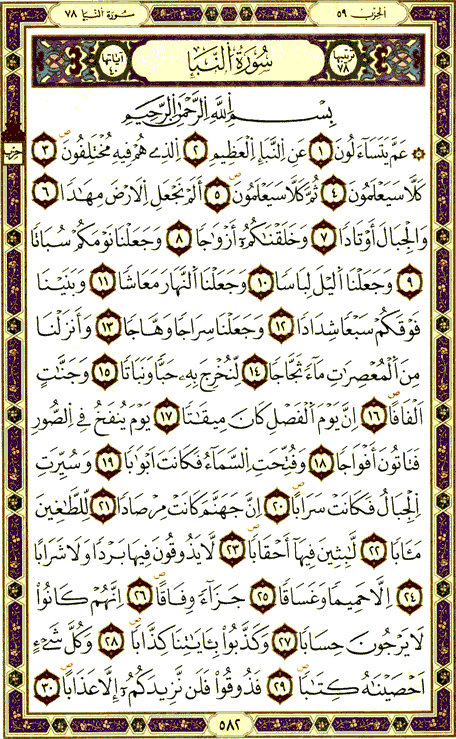 سورة النبإ ٧٨ الحزب ٥٩
ترتيبها ٧٨ سُورَةُ النَّبَإِ آياتها ٤٠
بِسْمِ اللَّهِ الرَّحْمَٰنِ الرَّحِيمِ
عَمَّ يَتَسَآءَلُونَ ١ عَنِ النَّبَإِ الْعَظِيمِ ٢ الَّذِى هُمْ فِيهِ مُخْتَلِفُونَ ٣
كَلَّا سَيَعْلَمُونَ ٤ ثُمَّ كَلَّا سَيَعْلَمُونَ ٥ أَلَمْ نَجْعَلِ الْأَرْضَ مِهَٰدًا ٦
وَالْجِبَالَ أَوْتَادًا ٧ وَخَلَقْنَٰكُمْ أَزْوَٰجًا ٨ وَجَعَلْنَا نَوْمَكُمْ سُبَاتًا
٩ وَجَعَلْنَا الَّيْلَ لِبَاسًا ١٠ وَجَعَلْنَا النَّهَارَ مَعَاشًا ١١ وَبَنَيْنَا
فَوْقَكُمْ سَبْعًا شِدَادًا ١٢ وَجَعَلْنَا سِرَاجًا وَهَّاجًا ١٣ وَأَنزَلْنَا
مِنَ الْمُعْصِرَٰتِ مَآءً ثَجَّاجًا ١٤ لِّنُخْرِجَ بِهِ حَبًّا وَنَبَاتًا ١٥ وَجَنَّٰتٍ
أَلْفَافًا ١٦ إِنَّ يَوْمَ الْفَصْلِ كَانَ مِيقَٰتًا ١٧ يَوْمَ يُنفَخُ فِى الصُّورِ
فَتَأْتُونَ أَفْوَاجًا ١٨ وَفُتِّحَتِ السَّمَآءُ فَكَانَتْ أَبْوَٰبًا ١٩ وَسُيِّرَتِ
الْجِبَالُ فَكَانَتْ سَرَابًا ٢٠ إِنَّ جَهَنَّمَ كَانَتْ مِرْصَادًا ٢١ لِّلطَّٰغِينَ
مَـَٔابًا ٢٢ لَّٰبِثِينَ فِيهَآ أَحْقَابًا ٢٣ لَّا يَذُوقُونَ فِيهَا بَرْدًا وَلَا شَرَابًا
٢٤ إِلَّا حَمِيمًا وَغَسَاقًا ٢٥ جَزَآءً وِفَاقًا ٢٦ إِنَّهُمْ كَانُوا۟
لَا يَرْجُونَ حِسَابًا ٢٧ وَكَذَّبُوا۟ بِـَٔايَٰتِنَا كِذَّابًا ٢٨ وَكُلَّ شَىْءٍ
أَحْصَيْنَٰهُ كِتَٰبًا ٢٩ فَذُوقُوا۟ فَلَن نَّزِيدَكُمْ إِلَّا عَذَابًا ٣٠
٥٨٢